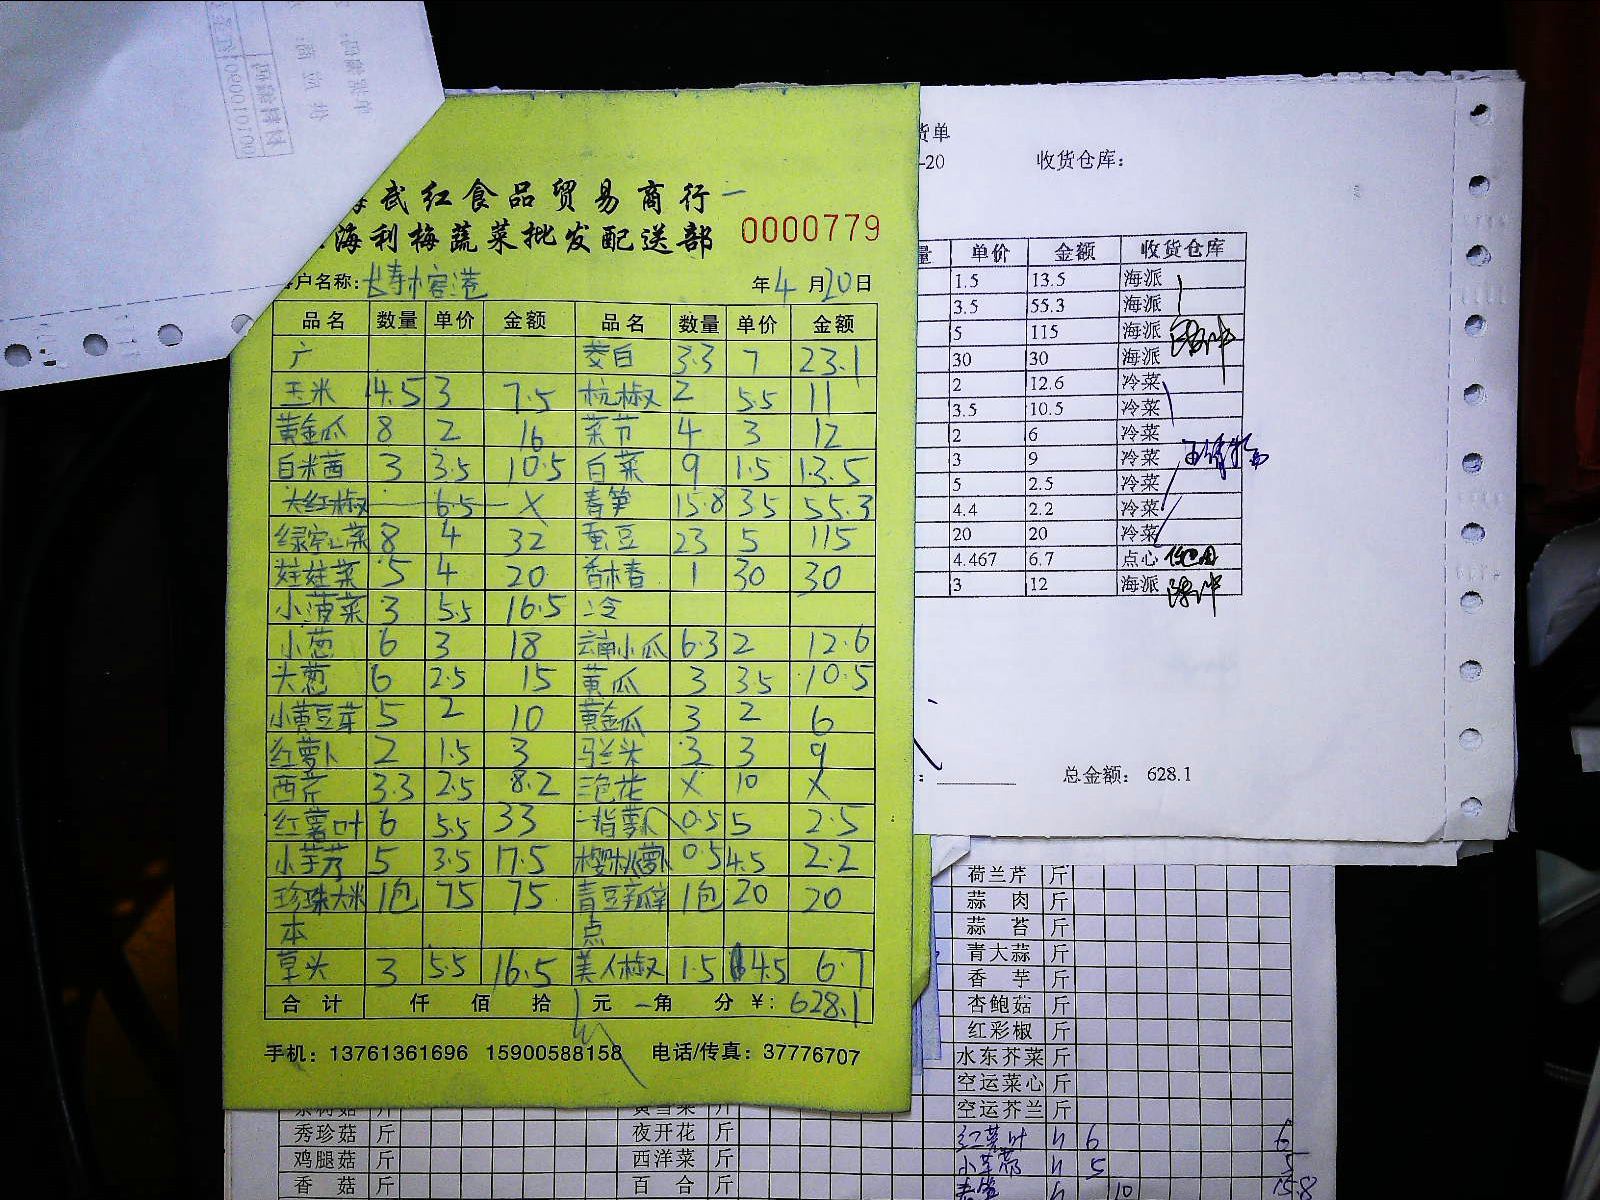 武红食品贸易商行
海利梅蔬菜批发配送部 0000779
户名称: 长寿榕港 年 4 月 20 日
品名 数量 单价 金额 品名 数量 单价 金额
广 茭白 3.3 7 23.1
玉米 3 7.5 杭椒 2 5.5 11
黄金瓜 8 2 16 菜节 4 3 12
白米茜 3 3.5 10.5 白菜 9 1.5 13.5
大红椒 6.5 X 青笋 15.8 3.5 55.3
绿空心菜 8 4 32 蚕豆 23 5 115
娃娃菜 5 4 20 香椿 1 30 30
小菠菜 3 5.5 16.5 冷
小葱 6 3 18 云南小瓜 6.3 2 12.6
大葱 6 2.5 15 黄瓜 3 3.5 10.5
小黄豆芽 5 2 10 黄金瓜 3 2 6
红萝卜 2 1.5 3 马兰头 3 3 9
西芹 3.3 2.5 8.2 X 10 X
红薯叶 6 5.5 33 一指萝卜 0.5 5 2.5
小芋艿 5 3.5 17.5 樱桃萝卜 0.5 4.5 2.2
珍珠大米 1包 75 75 青豆瓣 1包 20 20
本 点
草头 3 5.5 16.5 美人椒 1.5 4.5 6.7
合计 仟 佰 拾 元 一角 分 ¥: 628.1
手机: 13761361696 15900588158 电话/传真: 37776707
货单
-20 收货仓库:
量 单价 金额 收货仓库
1.5 13.5 海派
3.5 55.3 海派
5 115 海派
30 30 海派
2 12.6 冷菜
3.5 10.5 冷菜
2 6 冷菜
3 9 冷菜
5 2.5 冷菜
4.4 2.2 冷菜
20 20 冷菜
4.467 6.7 点心
3 12 海派
总金额: 628.1
荷兰芹 斤
蒜肉 斤
蒜苔 斤
青大蒜 斤
香芋 斤
杏鲍菇 斤
红彩椒 斤
水东芥菜 斤
空运菜心 斤
空运芥兰 斤
秀珍菇 斤 夜开花 斤 红薯叶 6 6
鸡腿菇 斤 西洋菜 斤 小芋艿 5 5
香菇 斤 百合 斤 青笋 10 15.8